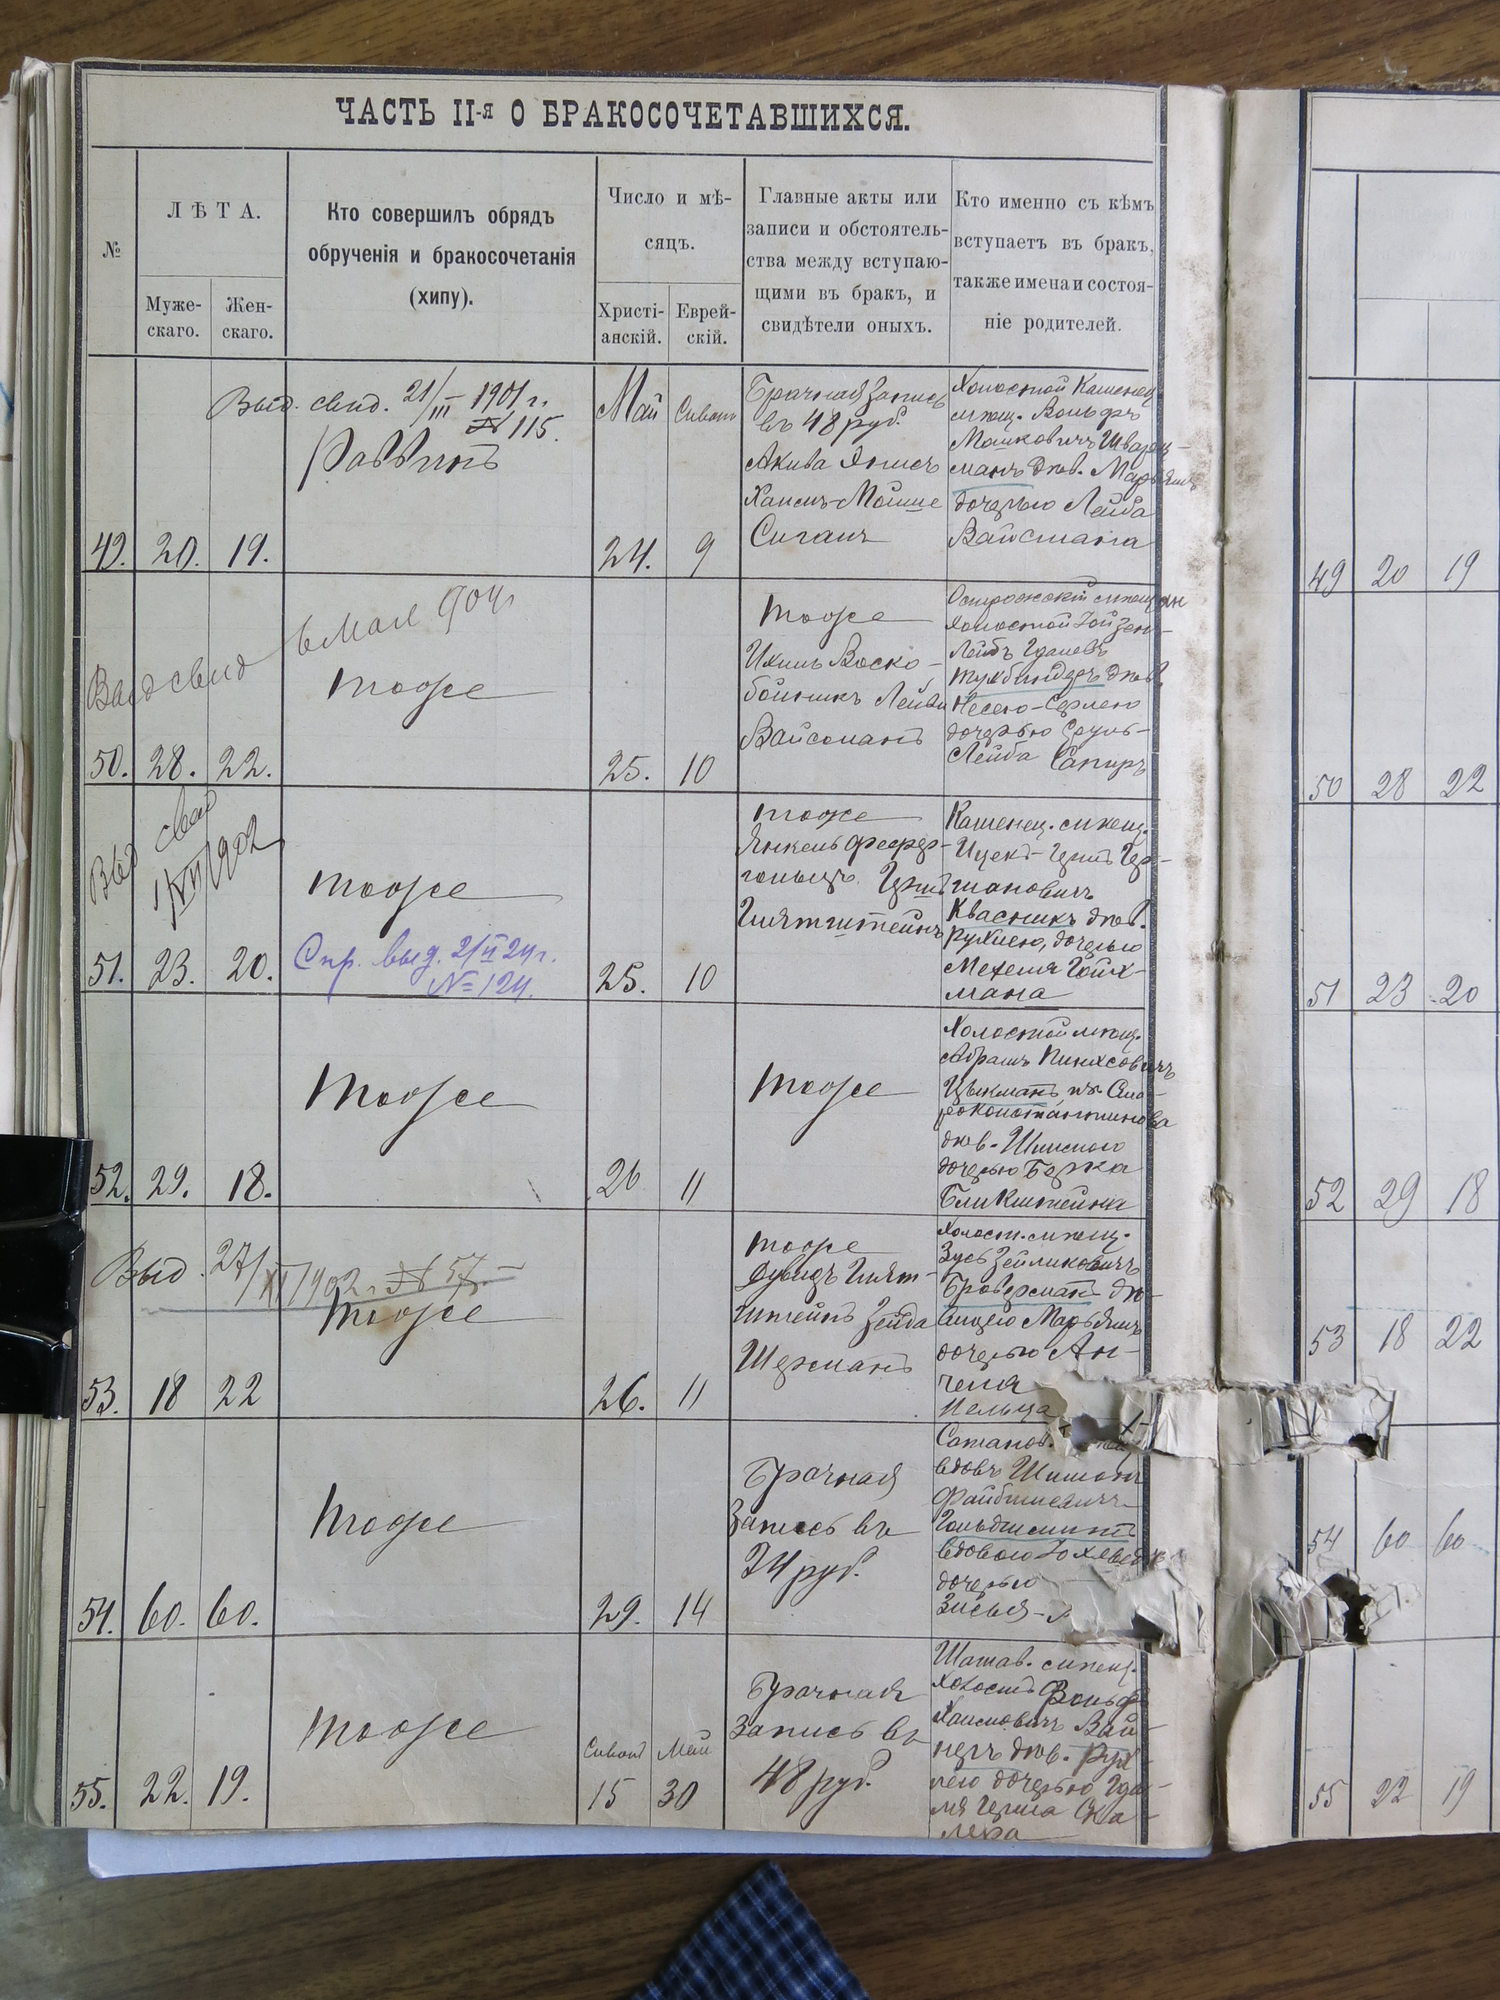 ЧАСТЬ II-я О БРАКОСОЧЕТАВШИХСЯ.
№
ЛѢТА.
Муже-
скаго.
Жен-
скаго.
Кто совершилъ обрядъ
обрученія и бракосочетанія
(хипу).
Число и мѣ-
сяцъ.
Христі-
анскій.
Еврей-
скій.
Главные акты или
записи и обстоятель-
ства между вступаю-
щими въ бракъ, и
свидѣтели оныхъ.
Кто именно съ кѣмъ
вступаетъ въ бракъ,
также имена и состоя-
ніе родителей.
Выд. свид. 21/III 1901 г.
№ 115.
Раввинъ
49. 20. 19.
Май
24.
Сиванъ
9
Брачная запись
въ 48 руб.
Хаимъ-Мойше
Сиганъ
Холостой Каменец.
мѣщ. Вольфъ
Машковичъ Шварц-
манъ дѣв. Марьямъ
дочерью Лейба
Вайсмана
Выд свид в Мая 904 г
тоже
50. 28. 22.
25. 10
тоже
Ихиль Воско-
бойникъ Лейба
Вайсманъ
Острожскій мѣщан
холостой Зой
Лейбъ
дѣв.
Несею-Серлею
дочерью Сруль-
Лейба Сапиръ
Выд свид
1/VII 1902
тоже
Спр. выд. 2/II 24 г.
№ 124.
51. 23. 20.
25. 10
тоже
Янкель
Гершъ
Глятштейнъ
Каменец. мѣщ.
Ицекъ-Гершъ Гер-
шановичъ
Квасникъ дѣв.
Рухлею, дочерью
Мехеля Гойх-
мана
тоже
52. 29. 18.
26 11
тоже
Холостой мѣщ.
Абрамъ Пинхсовичъ
Цыкманъ изъ Ста-
роконстантинова
дѣв.
дочерью Берка
Бликштейна
Выд. 27/XI 1902 г. № 57.
тоже
53. 18 22
26. 11
тоже
Глят-
штейнъ Зейда
Шерманъ
Холост. мѣщ.
Зусь Зейликовичъ
Броверманъ дѣ-
вицею Марьямъ
дочерью Ан-
челя
Пельца
тоже
54. 60. 60.
29. 14
Брачная
запись въ
24 руб.
Сатанов.
вдовъ Шимонъ
Файбишевичъ
Гольдшмитъ
вдовою Юхевед
дочерью
Зисья-
тоже
55. 22. 19.
Сиванъ
15
Май
30
Брачная
запись въ
48 руб.
Шатав. мѣщ.
холостъ Вольф
Хаимовичъ Вай-
неръ дѣв. Рух-
лею дочерью Геда-
ля Герша Ска-
лера
49 20 19
50 28 22
51 23 20
52 29 18
53 18 22
54 60 60
55 22 19